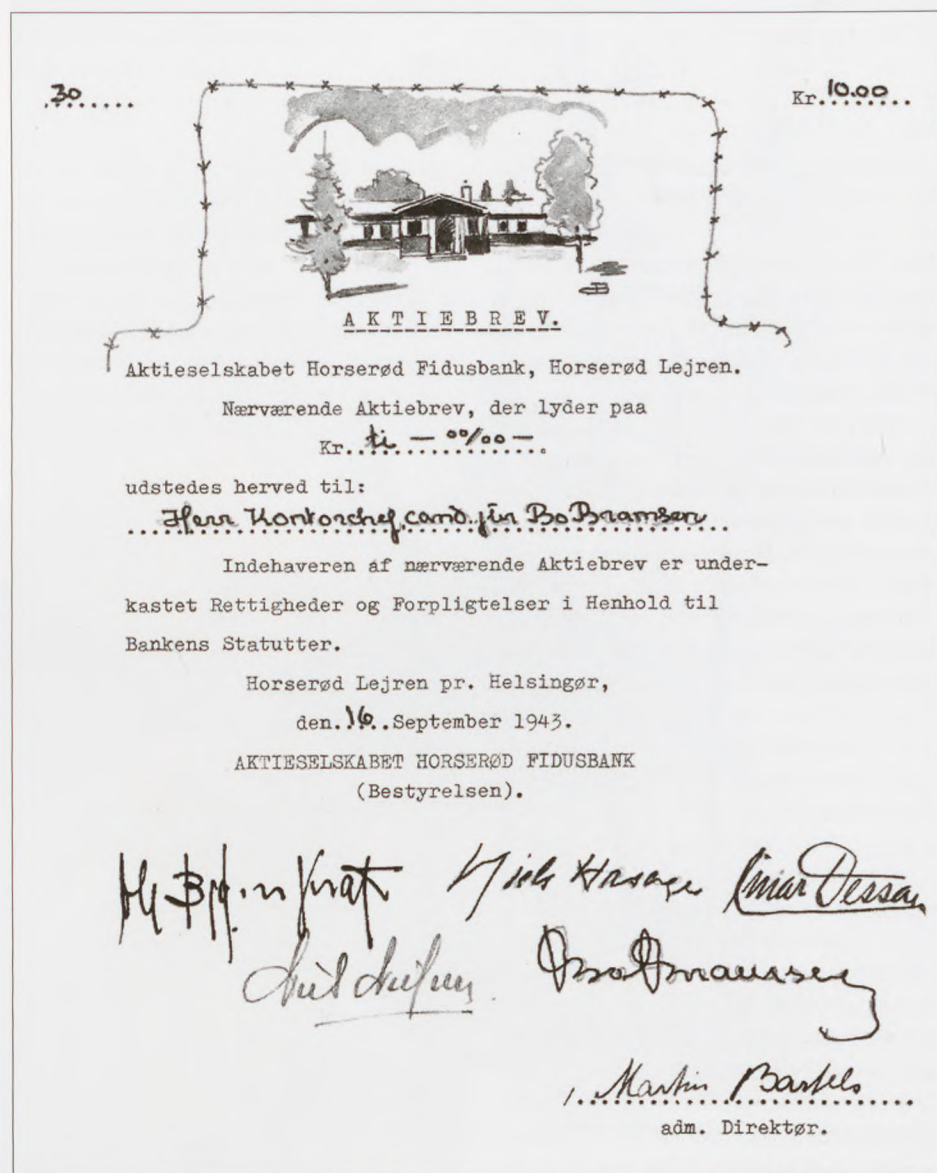 30
Kr. 10.00
AKTIEBREV.
Aktieselskabet Horserød Fidusbank, Horserød Lejren.
Nærværende Aktiebrev, der lyder paa
Kr. ti — 00/00 —
udstedes herved til:
Herr Kontorchef, cand. jur Bo Bramsen
Indehaveren af nærværende Aktiebrev er under-
kastet Rettigheder og Forpligtelser i Henhold til
Bankens Statutter.
Horserød Lejren pr. Helsingør,
den. 16. September 1943.
AKTIESELSKABET HORSERØD FIDUSBANK
(Bestyrelsen).
Niels Einar Dessau
Martin Bartels
adm. Direktør.